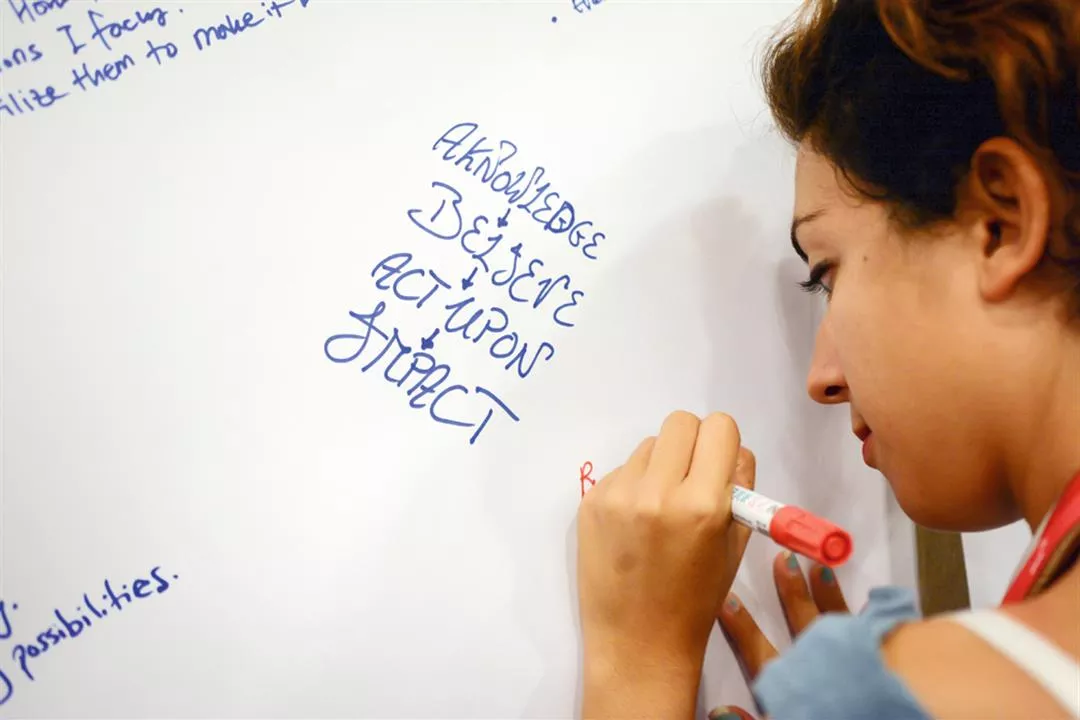 I facing.
utilize them to make it
AKNOWLEDGE
BELIEVE
ACT UPON
IMPACT
R
possibilities.